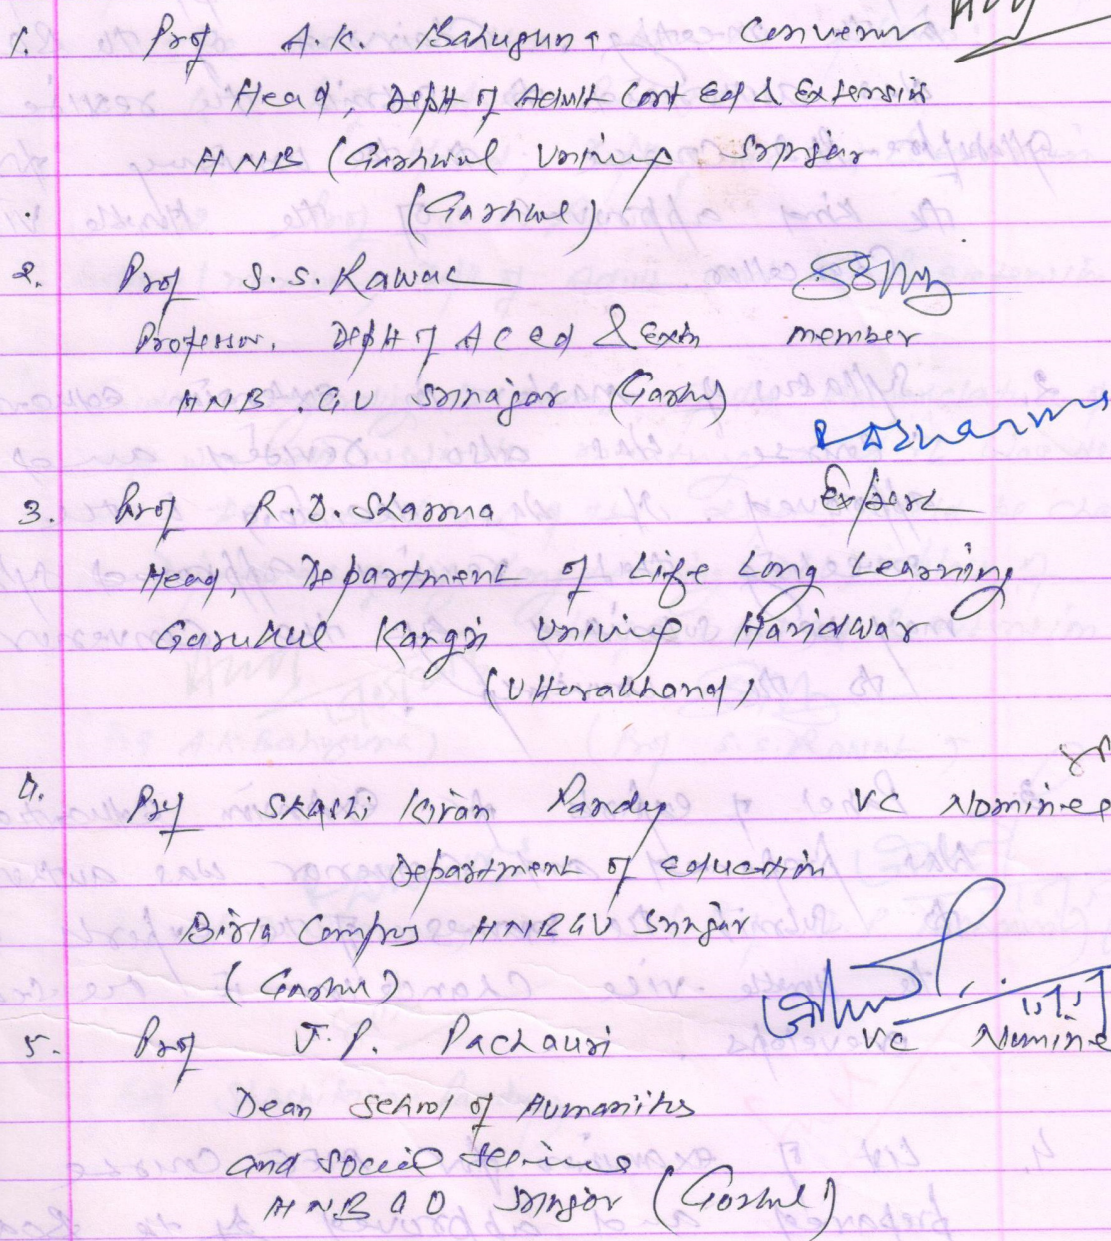 1. Prof A.K. Bahuguna Convenor
Head, Deptt of Adult Cont Ed & Extension
HNB Garhwal University Srinagar
(Garhwal)
2. Prof S.S. Rawat
Professor. Deptt of A C Ed & Extn member
HNB .GU Srinagar (Garhwal)
3. Prof R.D. Sharma Expert
Head, Department of Life Long Learning
Gurukul Kangri University Haridwar
(Uttarakhand)
4. Prof Shashi Kiran Pandey VC Nominee
Department of Education
Birla Campus HNBGU Srinagar
(Garhwal)
5. Prof J.P. Pachauri VC Nomine
Dean School of Humanities
and Social Sciences
HNB GU Srinagar (Garhwal)